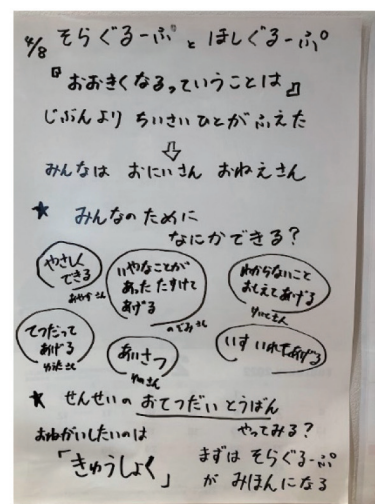 4/8 そらぐるーぷ と ほしぐるーぷ
『おおきくなるっていうことは』
じぶんより ちいさいひとが ふえた
⇩
みんなは おにいさん おねえさん
★ みんなのために
なにかできる?
やさしく
できる
いやなことが
あった たすけて
あげる
のぞみさん
わからないこと
おしえてあげる
てつだって
あげる
あいさつ
いす いれてあげる
★ せんせいの おてつだい とうばん
やってみる?
おねがいしたいのは
「きゅうしょく」
まずは そらぐるーぷ
が みほんになる